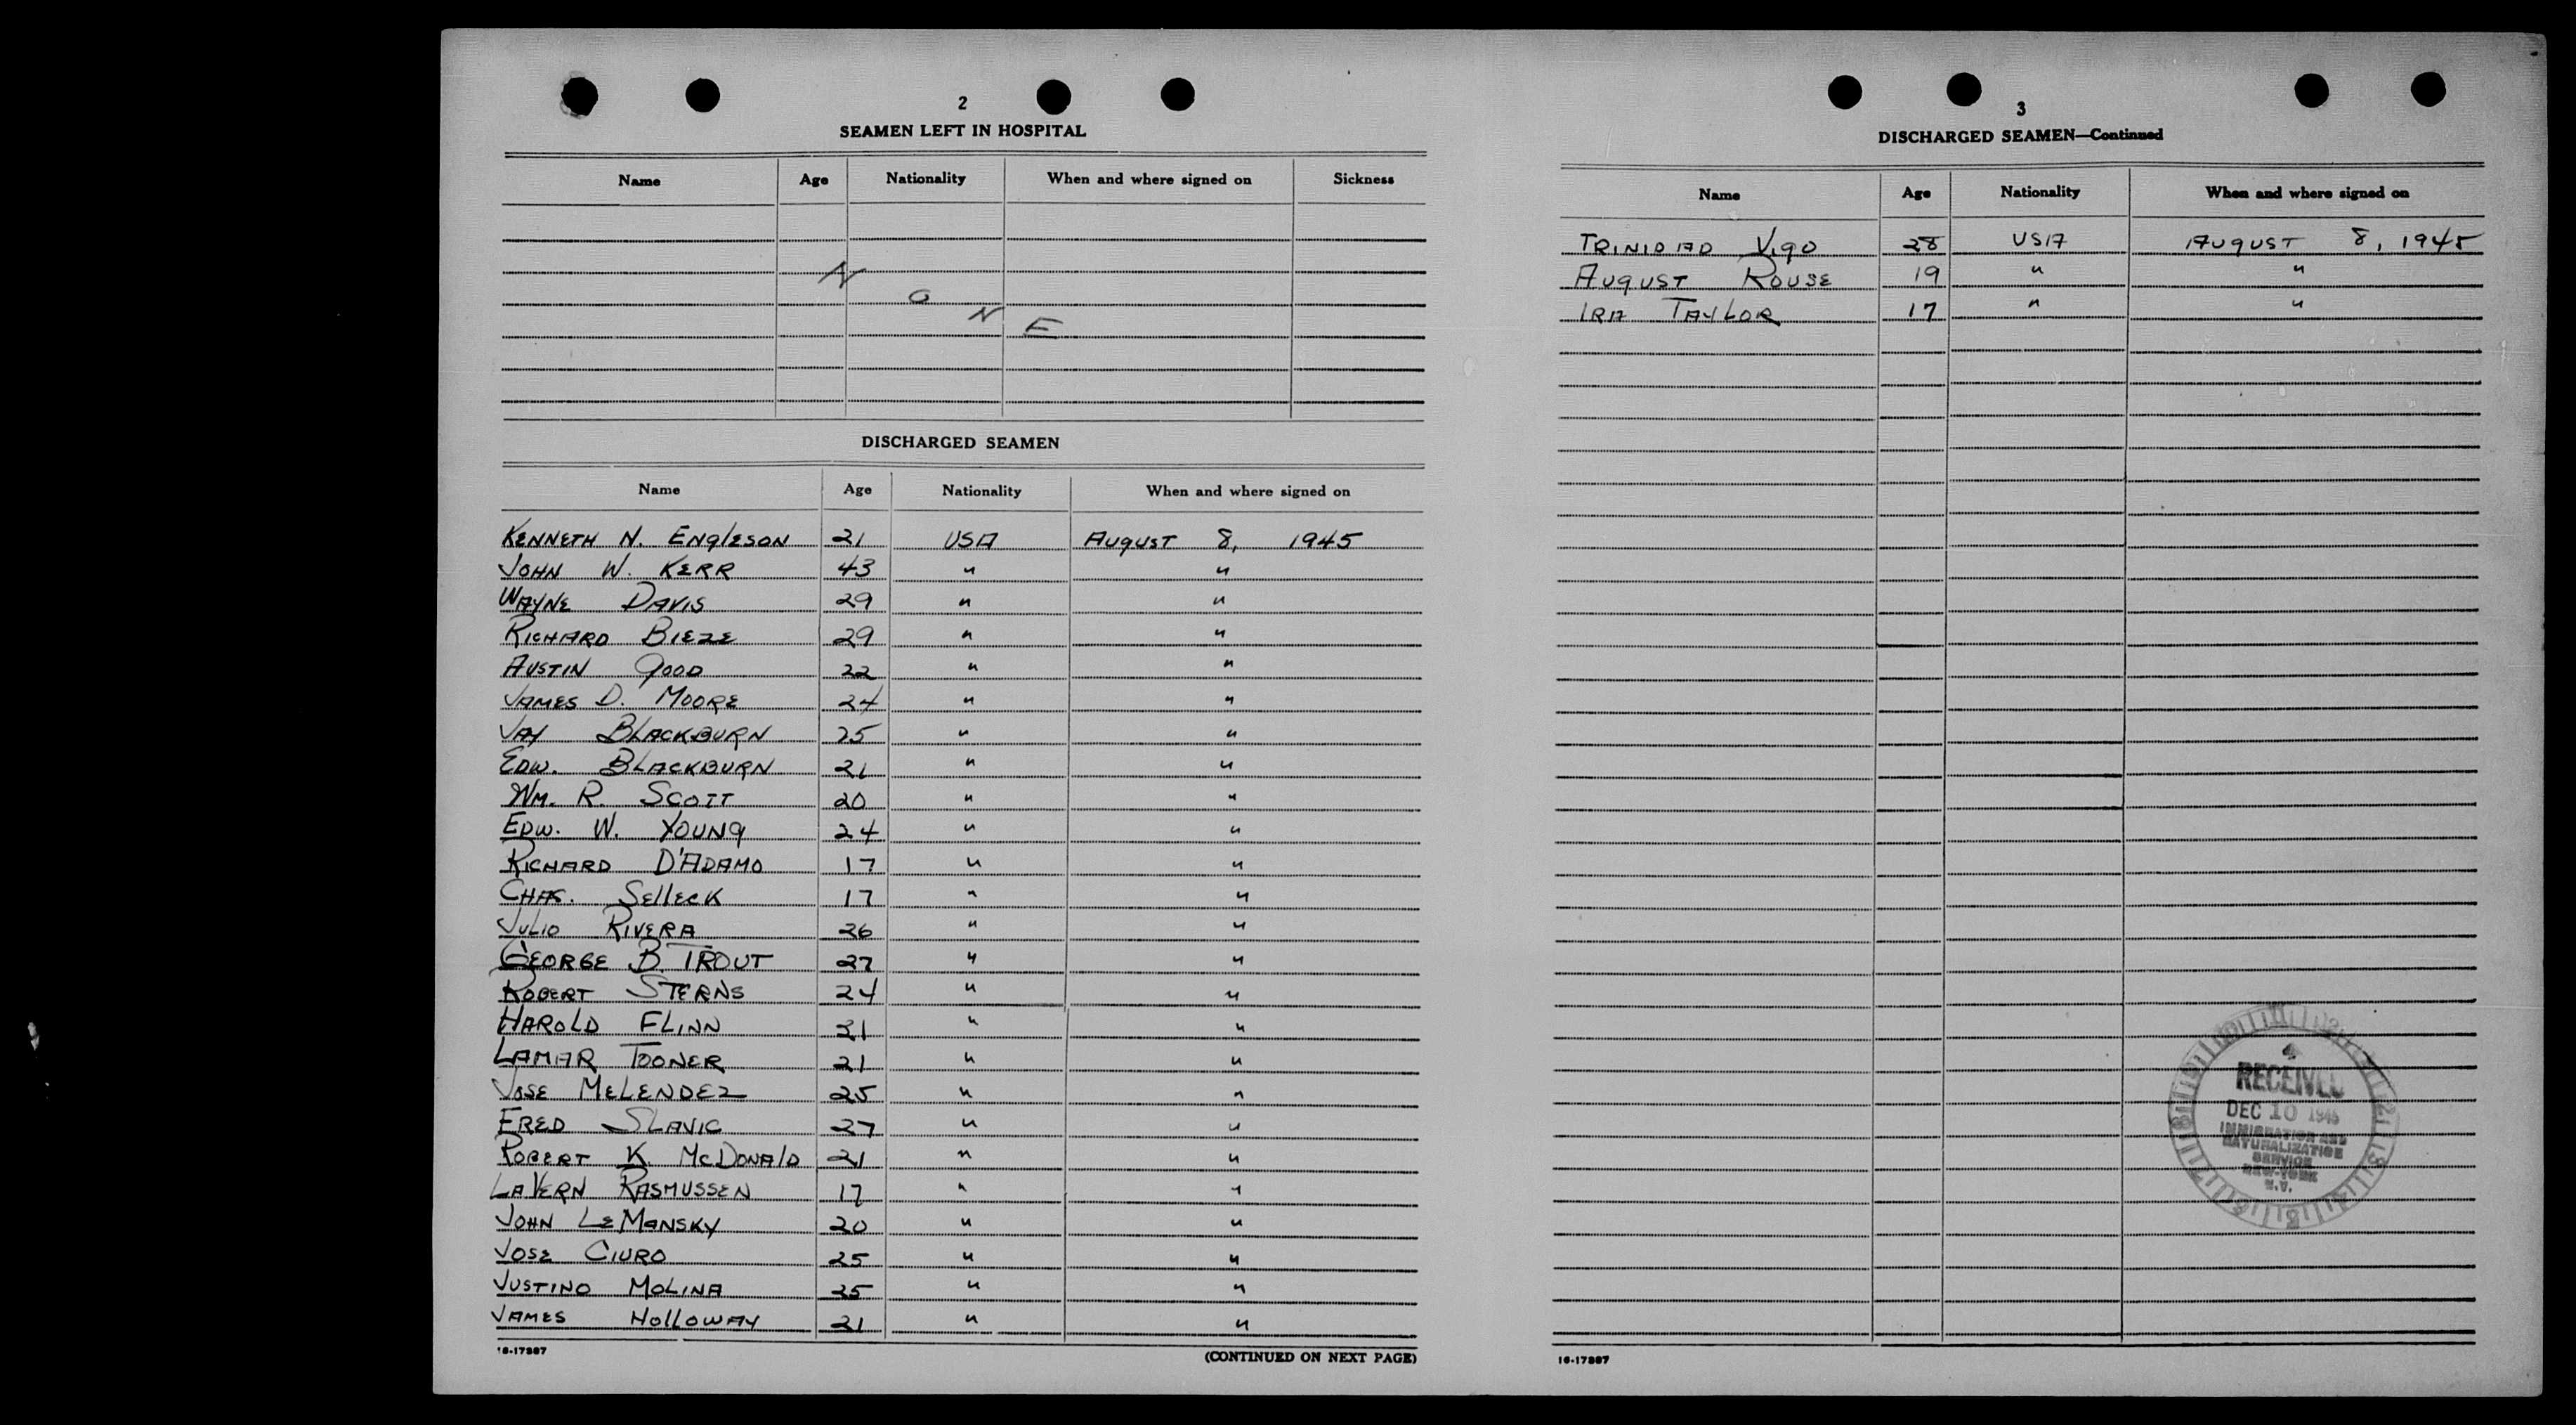 2
SEAMEN LEFT IN HOSPITAL
Name Age Nationality When and where signed on Sickness
NONE
DISCHARGED SEAMEN
Name Age Nationality When and where signed on
KENNETH N. ENGLESON 21 USA AUGUST 8, 1945
JOHN W. KERR 43 " "
WAYNE DAVIS 29 " "
RICHARD BIEZE 29 " "
AUSTIN GOOD 22 " "
JAMES D. MOORE 24 " "
JAY BLACKBURN 25 " "
EDW. BLACKBURN 21 " "
WM. R. SCOTT 20 " "
EDW. W. YOUNG 24 " "
RICHARD D'ADAMO 17 " "
CHAS. SELLECK 17 " "
JULIO RIVERA 26 " "
GEORGE B. TROUT 27 " "
ROBERT STERNS 24 " "
HAROLD FLINN 21 " "
LAMAR TOONER 21 " "
JOSE MELENDEZ 25 " "
FRED SLAVIC 27 " "
ROBERT K. McDONALD 21 " "
LAVERN RASMUSSEN 17 " "
JOHN LEMANSKY 20 " "
JOSE CIURO 25 " "
JUSTINO MOLINA 25 " "
JAMES HOLLOWAY 21 " "
16-17887
(CONTINUED ON NEXT PAGE)
3
DISCHARGED SEAMEN—Continued
Name Age Nationality When and where signed on
TRINIDAD VIGO 28 USA AUGUST 8, 1945
AUGUST ROUSE 19 " "
IRA TAYLOR 17 " "
RECEIVED
DEC 10 1945
IMMIGRATION AND
NATURALIZATION
SERVICE
NEW-YORK
N.Y.
16-17887